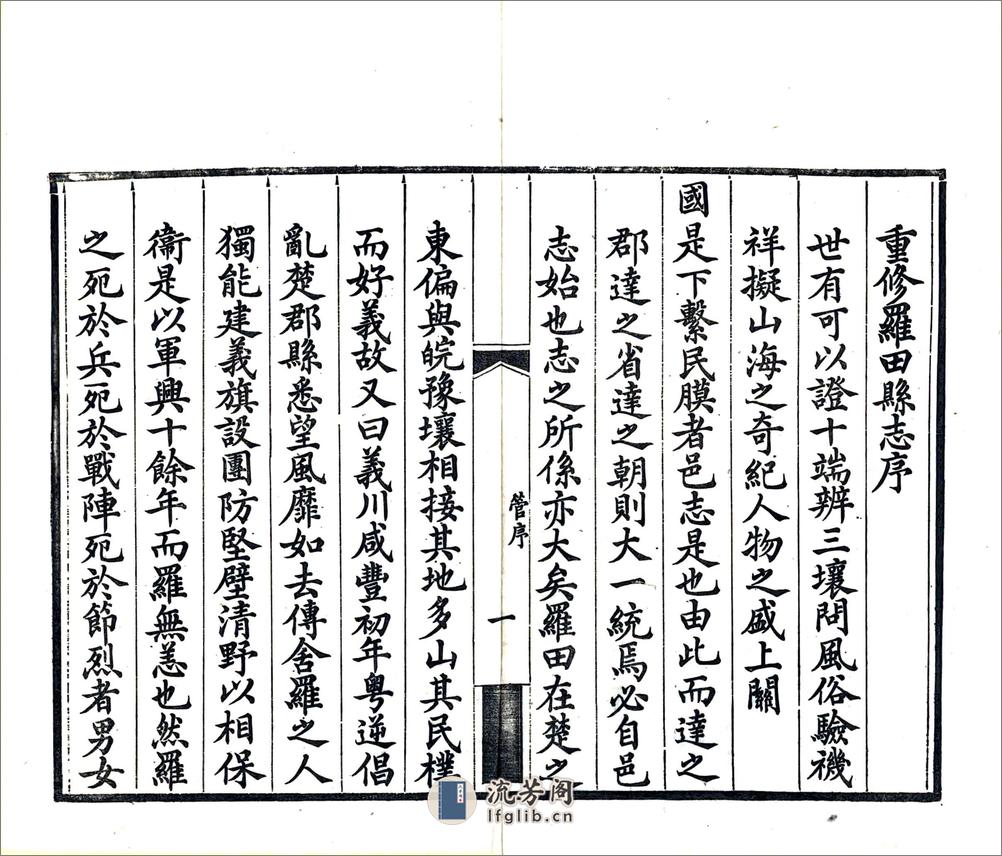 重修羅田縣志序
世有可以證十端辨三壤問風俗驗禨
祥擬山海之奇紀人物之盛上關
國是下繫民膜者邑志是也由此而達之
郡達之省達之朝則大一統焉必自邑
志始也志之所係亦大矣羅田在楚之
管序
一
東偏與皖豫壤相接其地多山其民樸
而好義故又曰義川咸豐初年粤逆倡
亂楚郡縣悉望風靡如去傳舍羅之人
獨能建義旗設團防堅壁清野以相保
衛是以軍興十餘年而羅無恙也然羅
之死於兵死於戰陣死於節烈者男女
流芳阁
lfglib.cn